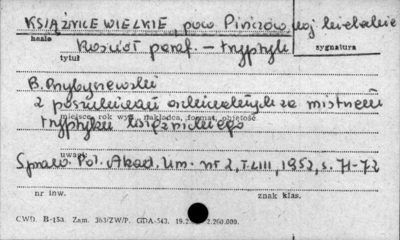 KSIĄŻNICE WIELKIE, pow Pińczów woj. kieleckie
hasło
Kościół paraf. – tryptyk
sygnatura
tytuł
B. Przybyszewski
Z poszukiwań archiwalnych za mistrzem
miejsce, rok wyd., nakładca, format, objętość
tryptyku książnickiego
uwagi
Sprawo. Pol. Akad. Um. nr 2, T. LIII, 1952, s. 71-72
nr inw.
znak klas.
CWD. B-153. Zam. 363/ZW/P. GDA-543. 19.2. 2.200.000.